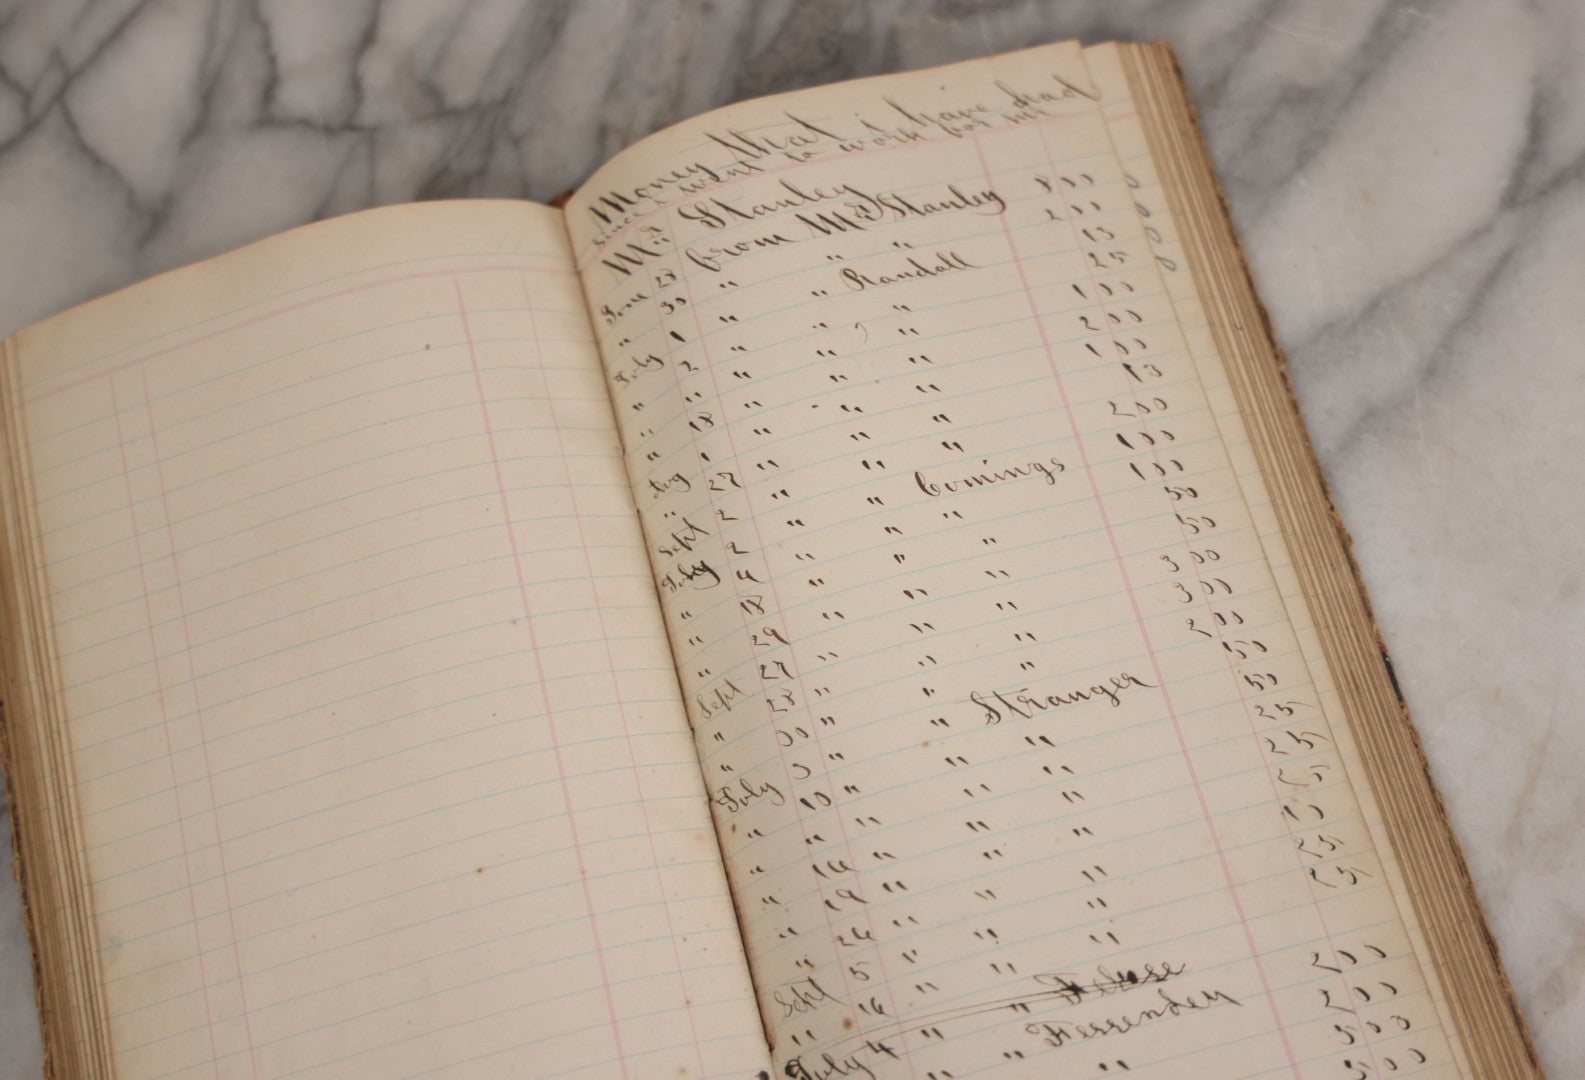 Money that i have had
since i went to work for Mr
Mr Stanley
June 23 from Mr Stanley 8 00
" 30 " " " 2 00
July 1 " " Randall 13
" 2 " " " 25
" " " " " 1 00
" 18 " " " 2 00
Aug 1 " " " 1 00
" 27 " " " 13
Sept 2 " " " 2 00
July 2 " " Comings 1 00
" 4 " " " 1 00
" 18 " " " 50
" 29 " " " 50
Sept 27 " " " 3 00
" 28 " " " 3 00
" 30 " " " 2 00
July 3 " " Stranger 50
" 10 " " " 50
" " " " " 25
" 16 " " " 25
" 19 " " " 25
" 26 " " " 10
Sept 5 " " " 25
" 16 " " " 25
July 4 " "
" " Ferrenden 2 00
" " 2 00
5 00
5 00